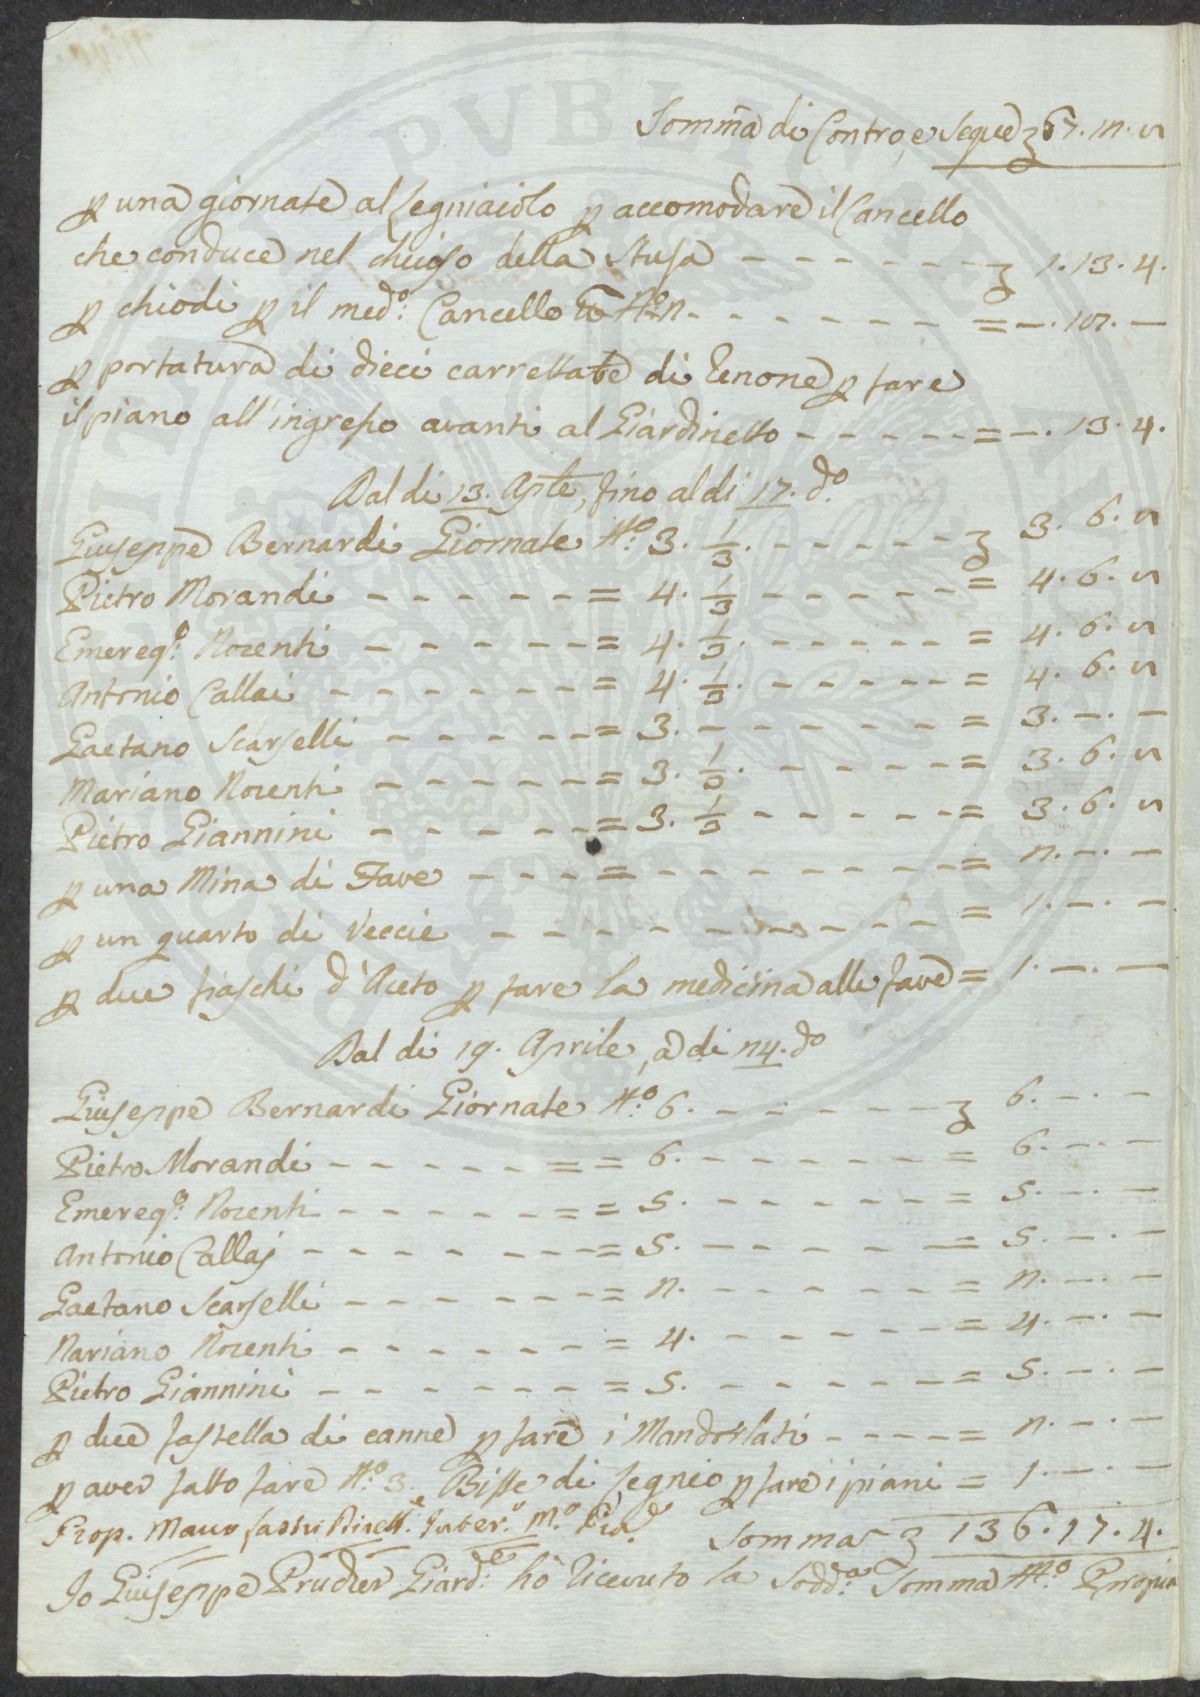 Somma di Contro, e Segue ʒ 67. 12. 8
ꝑ una giornate al legniaiolo ꝑ accomodare il Cancello
che conduce nel chiuso della Stufa - - - - - - - ʒ 1. 13. 4.
ꝑ chiodi ꝑ il med.º Cancello N.º 2. - - - - - - - = —. 18. —
ꝑ portatura di dieci carrettate di Renone ꝑ fare
il piano all'ingresso avanti al Giardinetto - - - - - = —. 13. 4.
Dal di 13. Aple, fino al di 17. dº
Giuseppe Bernardi Giornate N.º 3. 1/3. - - - - - - ʒ 3. 6. 8
Pietro Morandi - - - - - - = 4. 1/3 - - - - - - = 4. 6. 8
Emereg.º Nozenti - - - - - - = 4. 1/3. - - - - - - = 4. 6. 8
Antonio Callai - - - - - - - = 4. 1/3. - - - - - - = 4. 6. 8
Gaetano Scarselli - - - - - = 3. - - - - - - - = 3. —. —
Mariano Nozenti - - - - - - = 3. 1/3. - - - - - = 3. 6. 8
Pietro Giannini - - - - - - = 3. 1/3 - - - - - - = 3. 6. 8
ꝑ una Mina di Fave - - - - = - - - - - - - - = 2. —. —
ꝑ un quarto di Veccie - - - - - - - - - - - = 1. —. —
ꝑ due fiaschi d'Aceto ꝑ fare la medicina alle fave = 1. —. —
Dal di 19. Aprile, a di 24. dº
Giuseppe Bernardi Giornate N.º 6. - - - - - - - ʒ 6. —. —
Pietro Morandi - - - - - - = = 6. - - - - - - - = 6. —. —
Emereg.º Nozenti - - - - - - = = 5. - - - - - - - = 5. —. —
Antonio Callaj - - - - - - - - = 5. - - - - - - - = 5. —. —
Gaetano Scarselli - - - - - - - = 2. - - - - - - - = 2. —. —
Mariano Nozenti - - - - - - - = 4. - - - - - - - = 4. —. —
Pietro Giannini - - - - - - - = 5. - - - - - - - = 5. —. —
ꝑ due fastella di canne ꝑ fare i Mandorlati - - - - = 2. —. —
ꝑ aver fatto fare N.º 3. Biffe di legnio ꝑ fare i piani = 1. —. —
Prop. Mauro M.º Somma ʒ 136. 17. 4.
Io Giuseppe Prucher Giard.e hò ricevuto la Sodd.a Somma M.º Propia